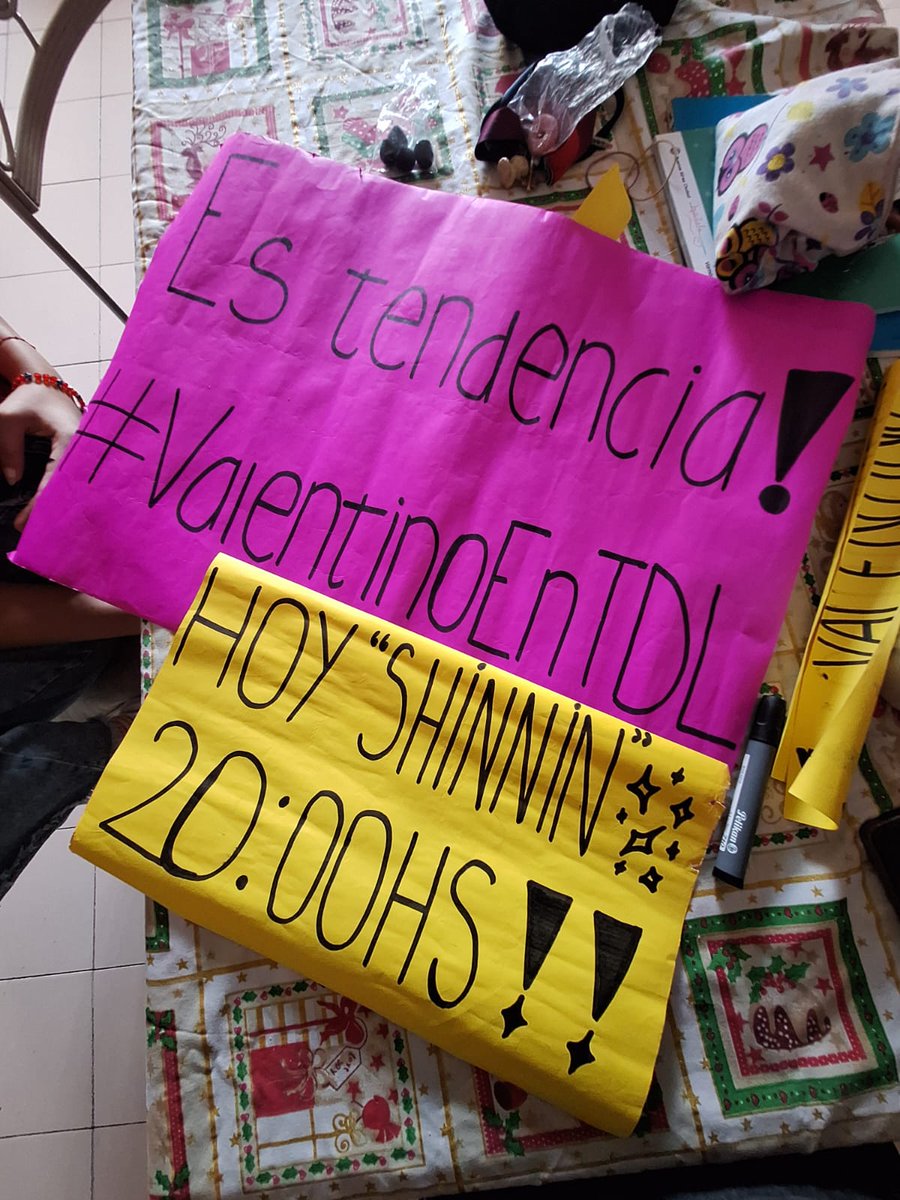 Es tendencia!
#ValentinoEnTDL
HOY "SHiNNiN"
20:00HS!!
VALENTIN
Pelikan